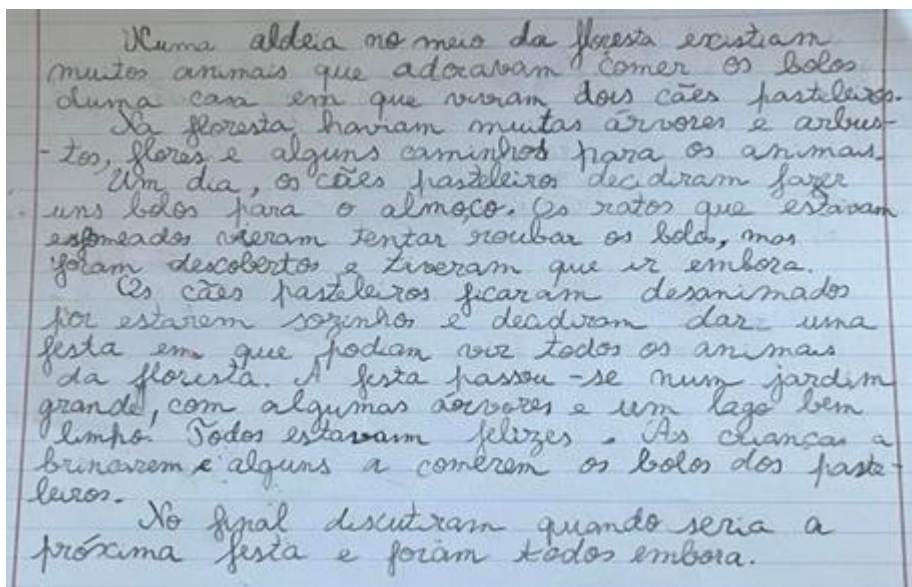 Numa aldeia no meio da floresta existiam
muitos animais que adoravam comer os bolos
duma casa em que viviam dois cães pasteleiros.
Na floresta haviam muitas árvores e arbus-
-tos, flores e alguns caminhos para os animais.
Um dia, os cães pasteleiros decidiram fazer
uns bolos para o almoço. Os ratos que estavam
esfomeados vieram tentar roubar os bolos, mas
foram descobertos e tiveram que ir embora.
Os cães pasteleiros ficaram desanimados
por estarem sozinhos e decidiram dar uma
festa em que podiam vir todos os animais
da floresta. A festa passou-se num jardim
grande, com algumas árvores e um lago bem
limpo. Todos estavam felizes. As crianças a
brincarem e alguns a comerem os bolos dos paste-
leiros.
No final discutiram quando seria a
próxima festa e foram todos embora.